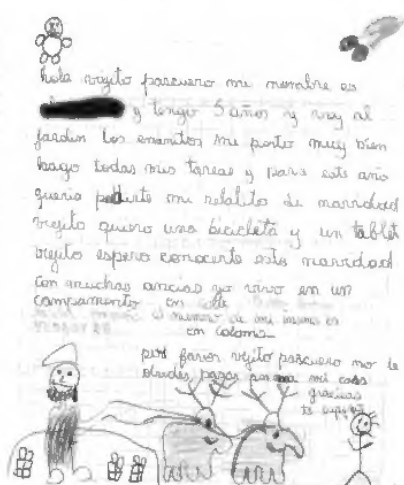 hola viejito pascuero mi nombre es
y tengo 5 años y voy al
jardin los enanitos me porto muy bien
hago todas mis tareas y para este año
queria pedirte mi relalito de navidad
viejito quiero una bicicleta y un tablet
viejito espero conocerte esta navidad
con muchas ancias yo vivo en un
campamento en calle
el numero de mi mama es
en colome
por favor viejito pascuero no te
olvides pasar por mi casa
gracias
te espero